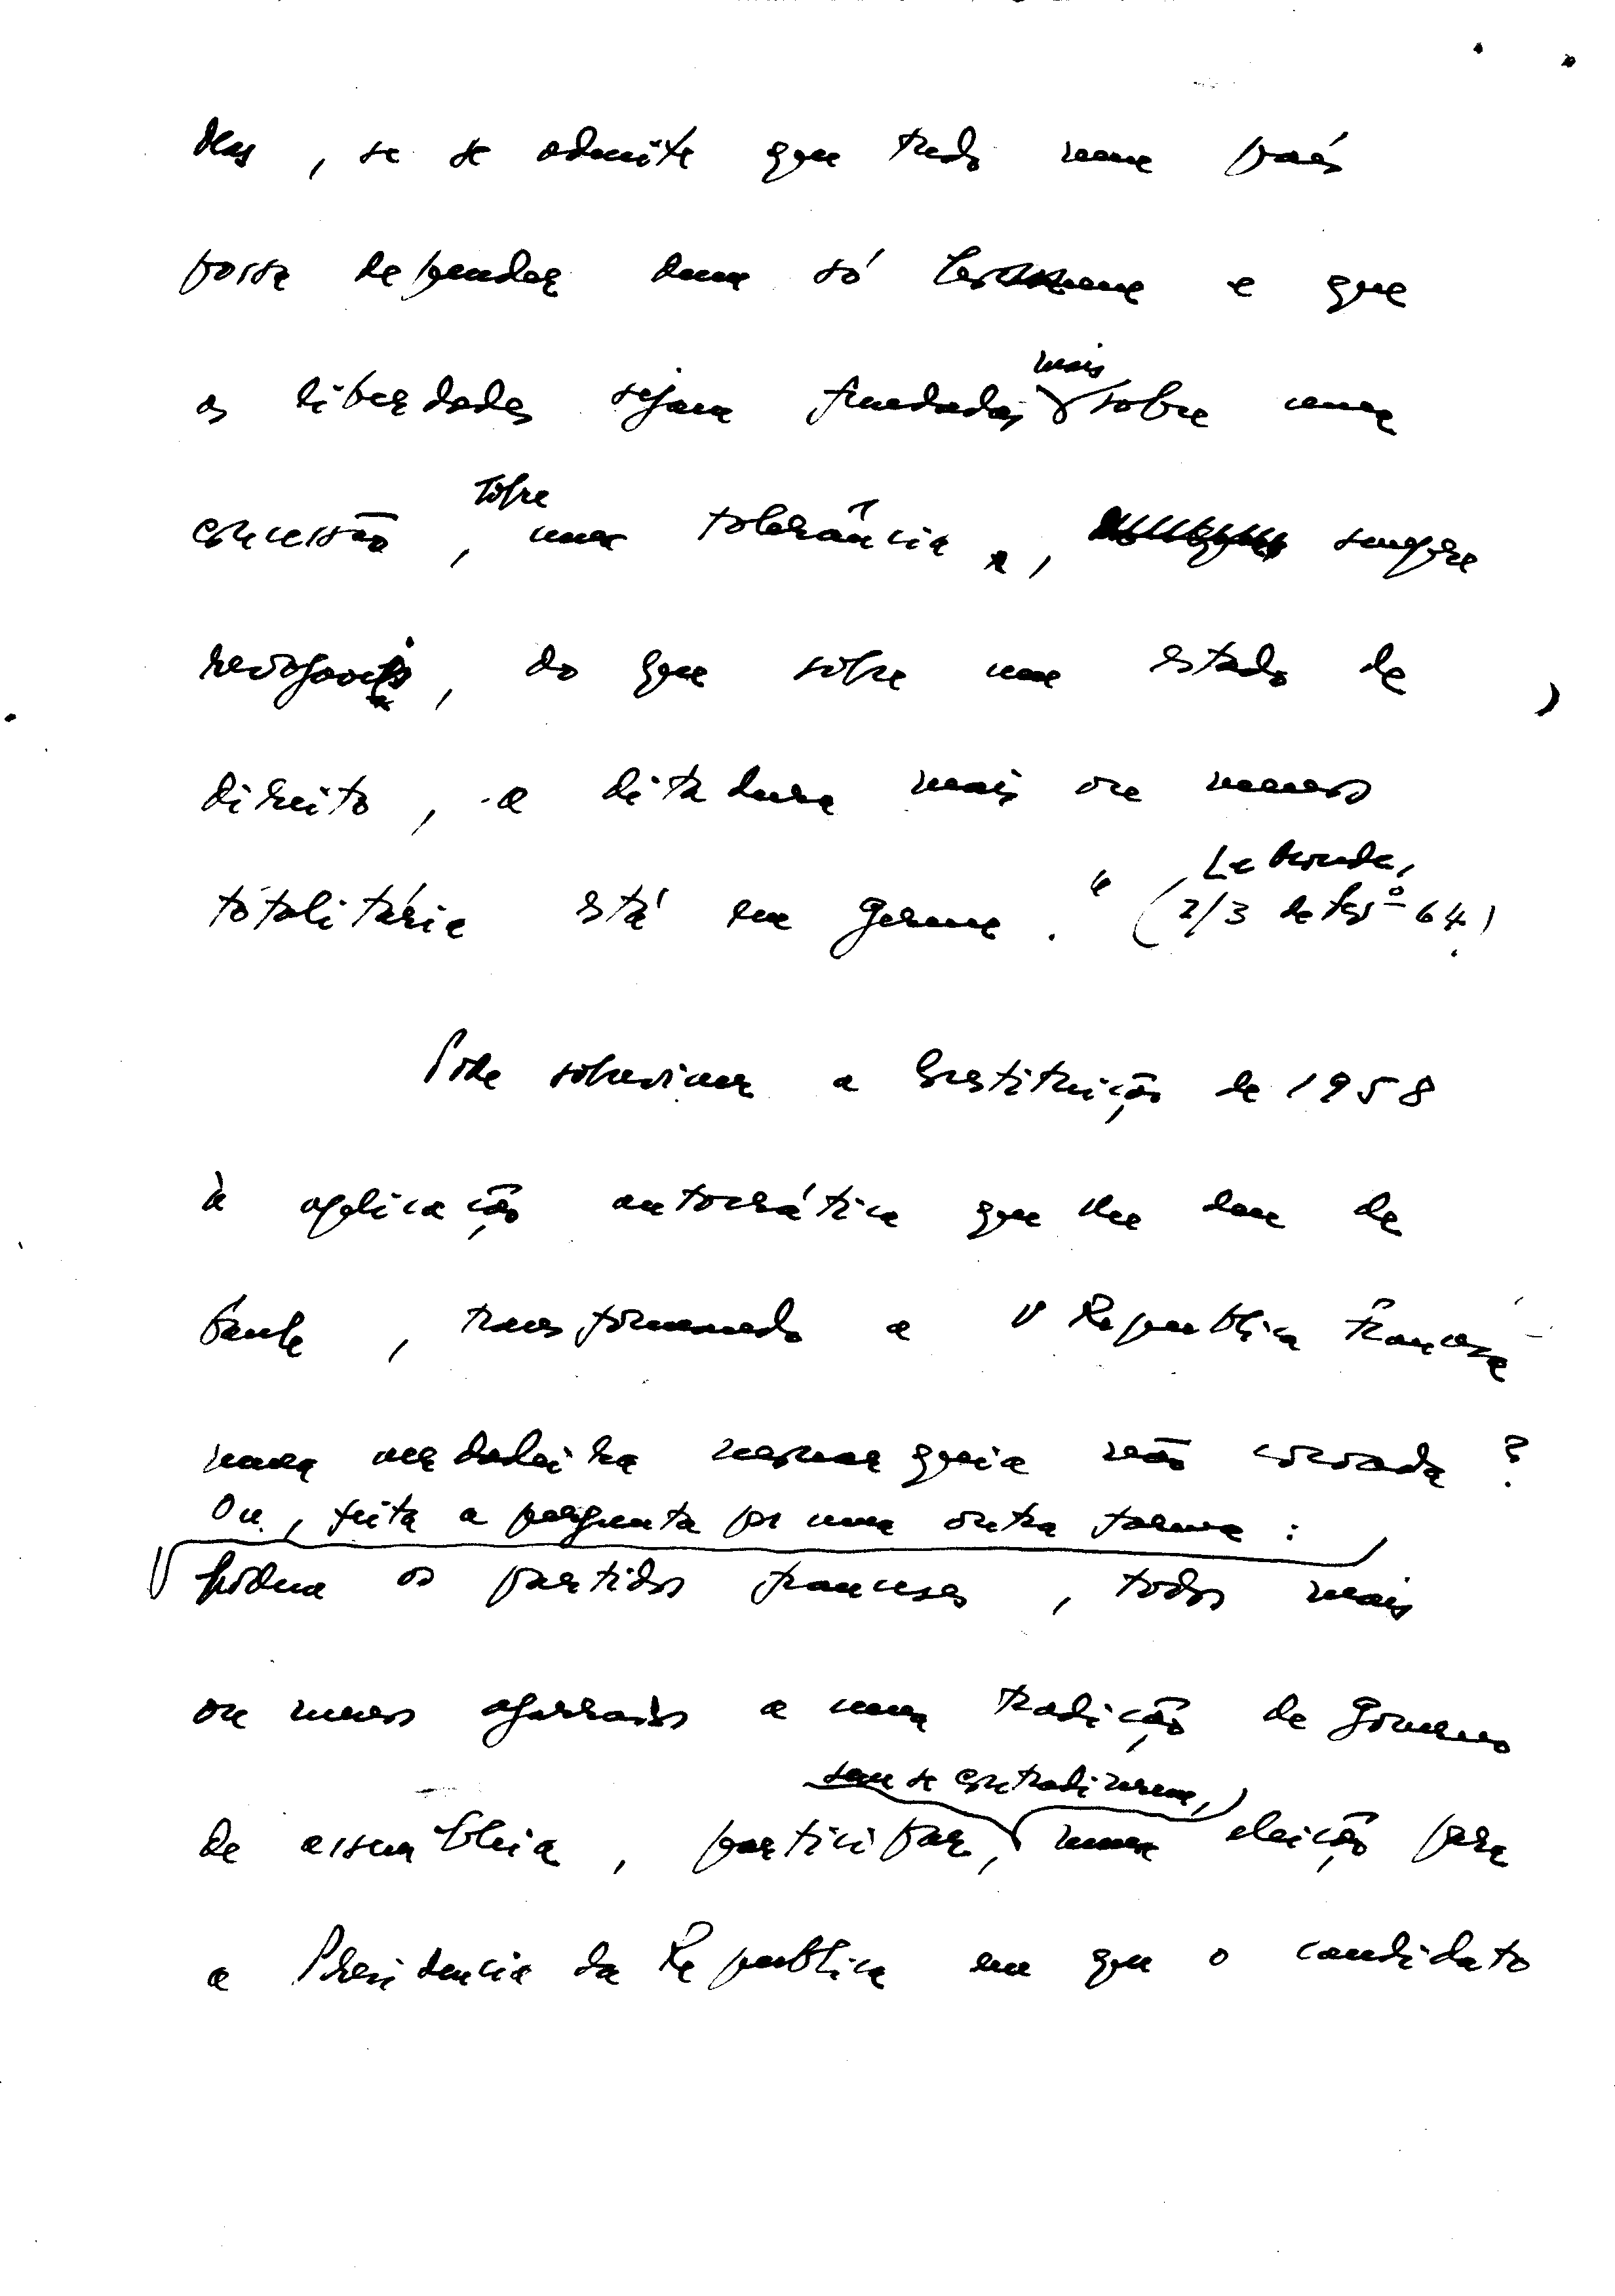 Mas, se se admite que tudo num país
possa depender dum só homem e que
as liberdades sejam fundadas mais sobre uma
concessão, sobre uma tolerância, sempre
revogáveis, do que sobre um estado de
direito, a ditadura mais ou menos
totalitária está em germe." (Le Monde,
2/3 de fevº 64)
Pode sobreviver a Constituição de 1958
à aplicação autocrática que lhe deu de
Gaulle, transformando a V Republica Francesa
numa verdadeira monarquia não coroada?
Ou, feita a pergunta por uma outra forma:
podem os partidos franceses, todos mais
ou menos agarrados a uma tradição de Governo
de assembleia, participar, sem se contradizerem, numa eleição para
a Presidencia da Republica em que o candidato